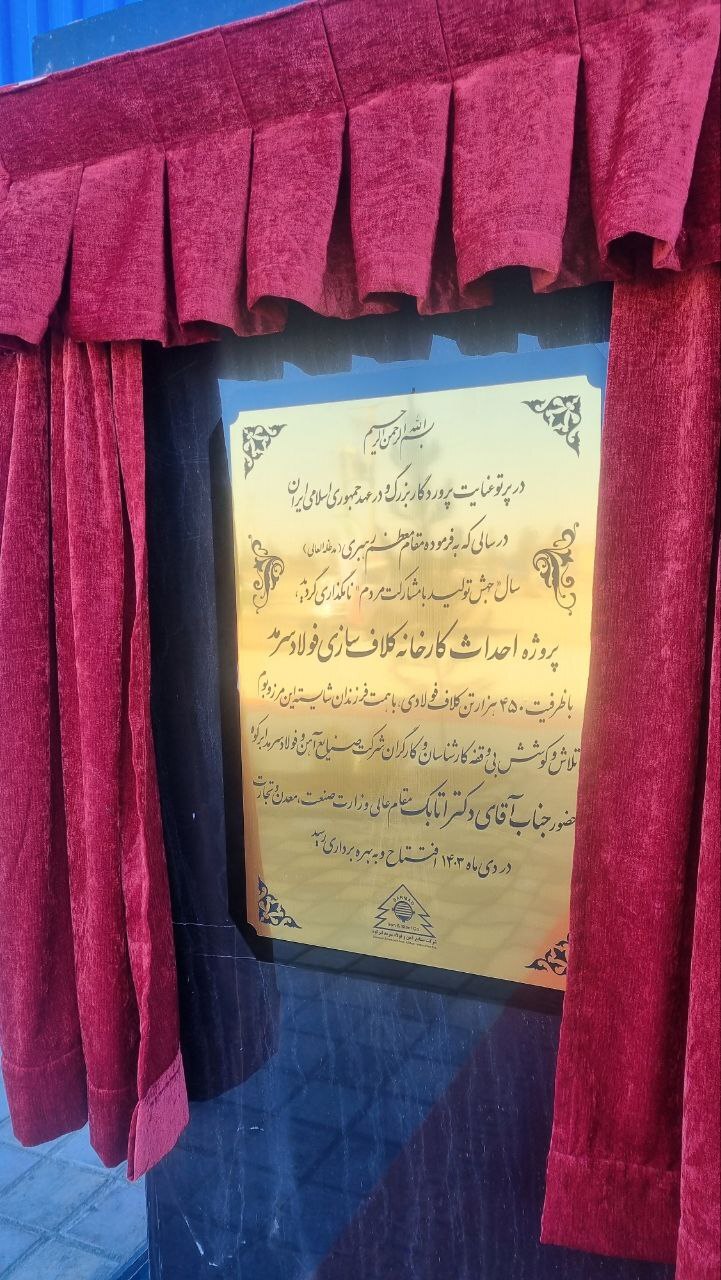 بسم الله الرحمن الرحیم
در پرتو عنایت پروردگار بزرگ و در عهد جمهوری اسلامی ایران
در سالی که به فرموده مقام معظم رهبری (مدظله العالی)
سال "جهش تولید با مشارکت مردم" نامگذاری گردید،
پروژه احداث کارخانه کلاف سازی فولاد سرمد
باظرفیت ۴۵۰ هزار تن کلاف فولادی، با همت فرزندان شایسته این مرز و بوم
تلاش و کوشش بی وقفه کارشناسان و کارگران شرکت صنایع آهن و فولاد سرمد ابرکوه
حضور جناب آقای دکتر اتابک مقام عالی وزارت صنعت، معدن و تجارت
در دی ماه ۱۴۰۳ افتتاح و به بهره برداری رسید
SARMAD
Iron & Steel Co
شرکت صنایع آهن و فولاد سرمد ابرکوه